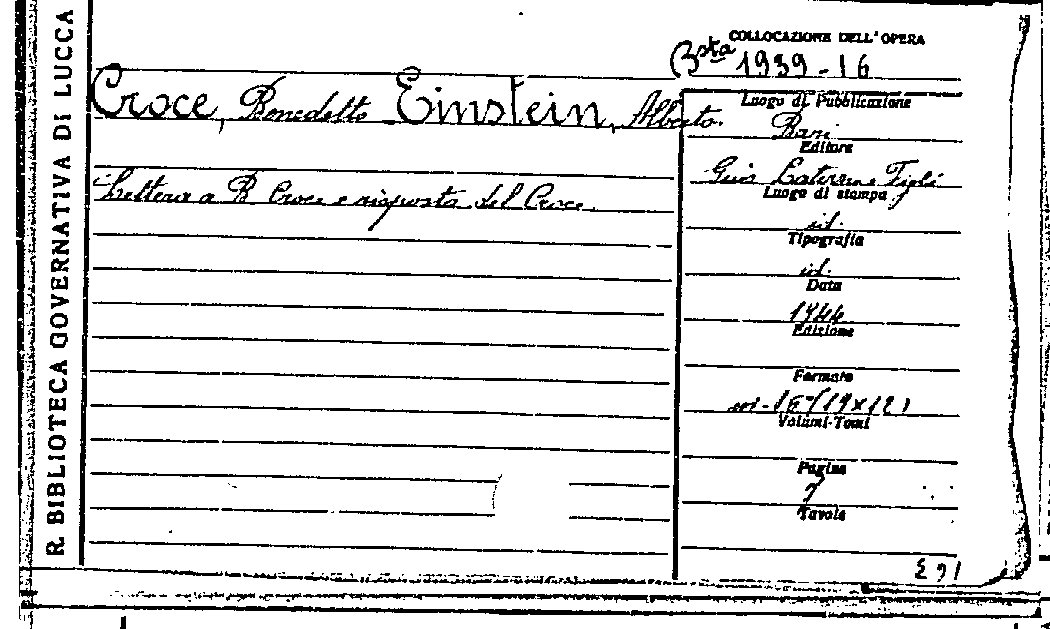 R. BIBLIOTECA GOVERNATIVA DI LUCCA
COLLOCAZIONE DELL'OPERA
Bsta 1939-16
Croce, Benedetto Einstein, Alberto.
Luogo di Pubblicazione
Bari
Editore
Lettera a B Croce e risposta del Croce.
Gius Laterza e Figli
Luogo di stampa
id.
Tipografia
id.
Data
1944
Edizione
Formato
in-16° (19x12)
Volumi-Tomi
Pagine
7
Tavole